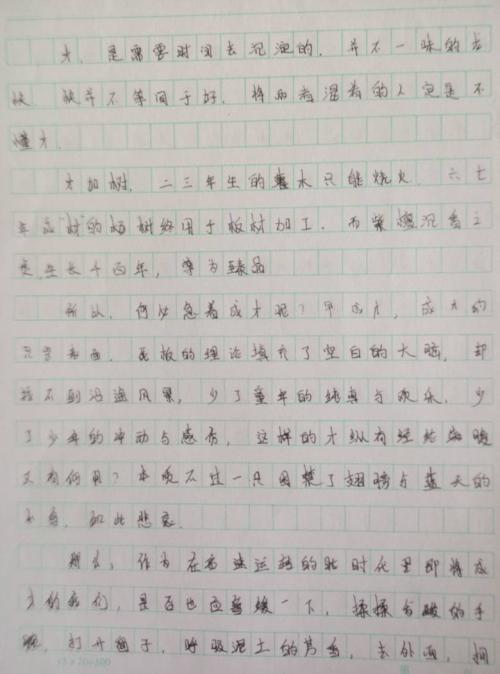 才，是需要时间去沉淀的，并不一味的去
快，快并不等同于好，择而着湿着的人定是不
懂才．
才如树，二三年生的木只能烧火，六七
年成"材"的杨树终用于板材加工，而紫檀沉香之
类，生长千百年，带为臻品
所以，何必急着成才呢？早成才，成才的
只是表面，死板的理论填充了空白的大脑，却
看不到沿途风景，少了童年的纯真与欢乐，少
了少年的冲动与感伤，这样的才纵有经纶
又有何用？本质不过一只困禁了翅膀与蓝天的
小鸟，如此悲哀．
那么，作为在高速运转的时代里即将成
才的我们，是否也应当缓一下，揉揉酸的手
腕，打开窗子，呼吸泥土的芳香，去外面，拥
15×20=300